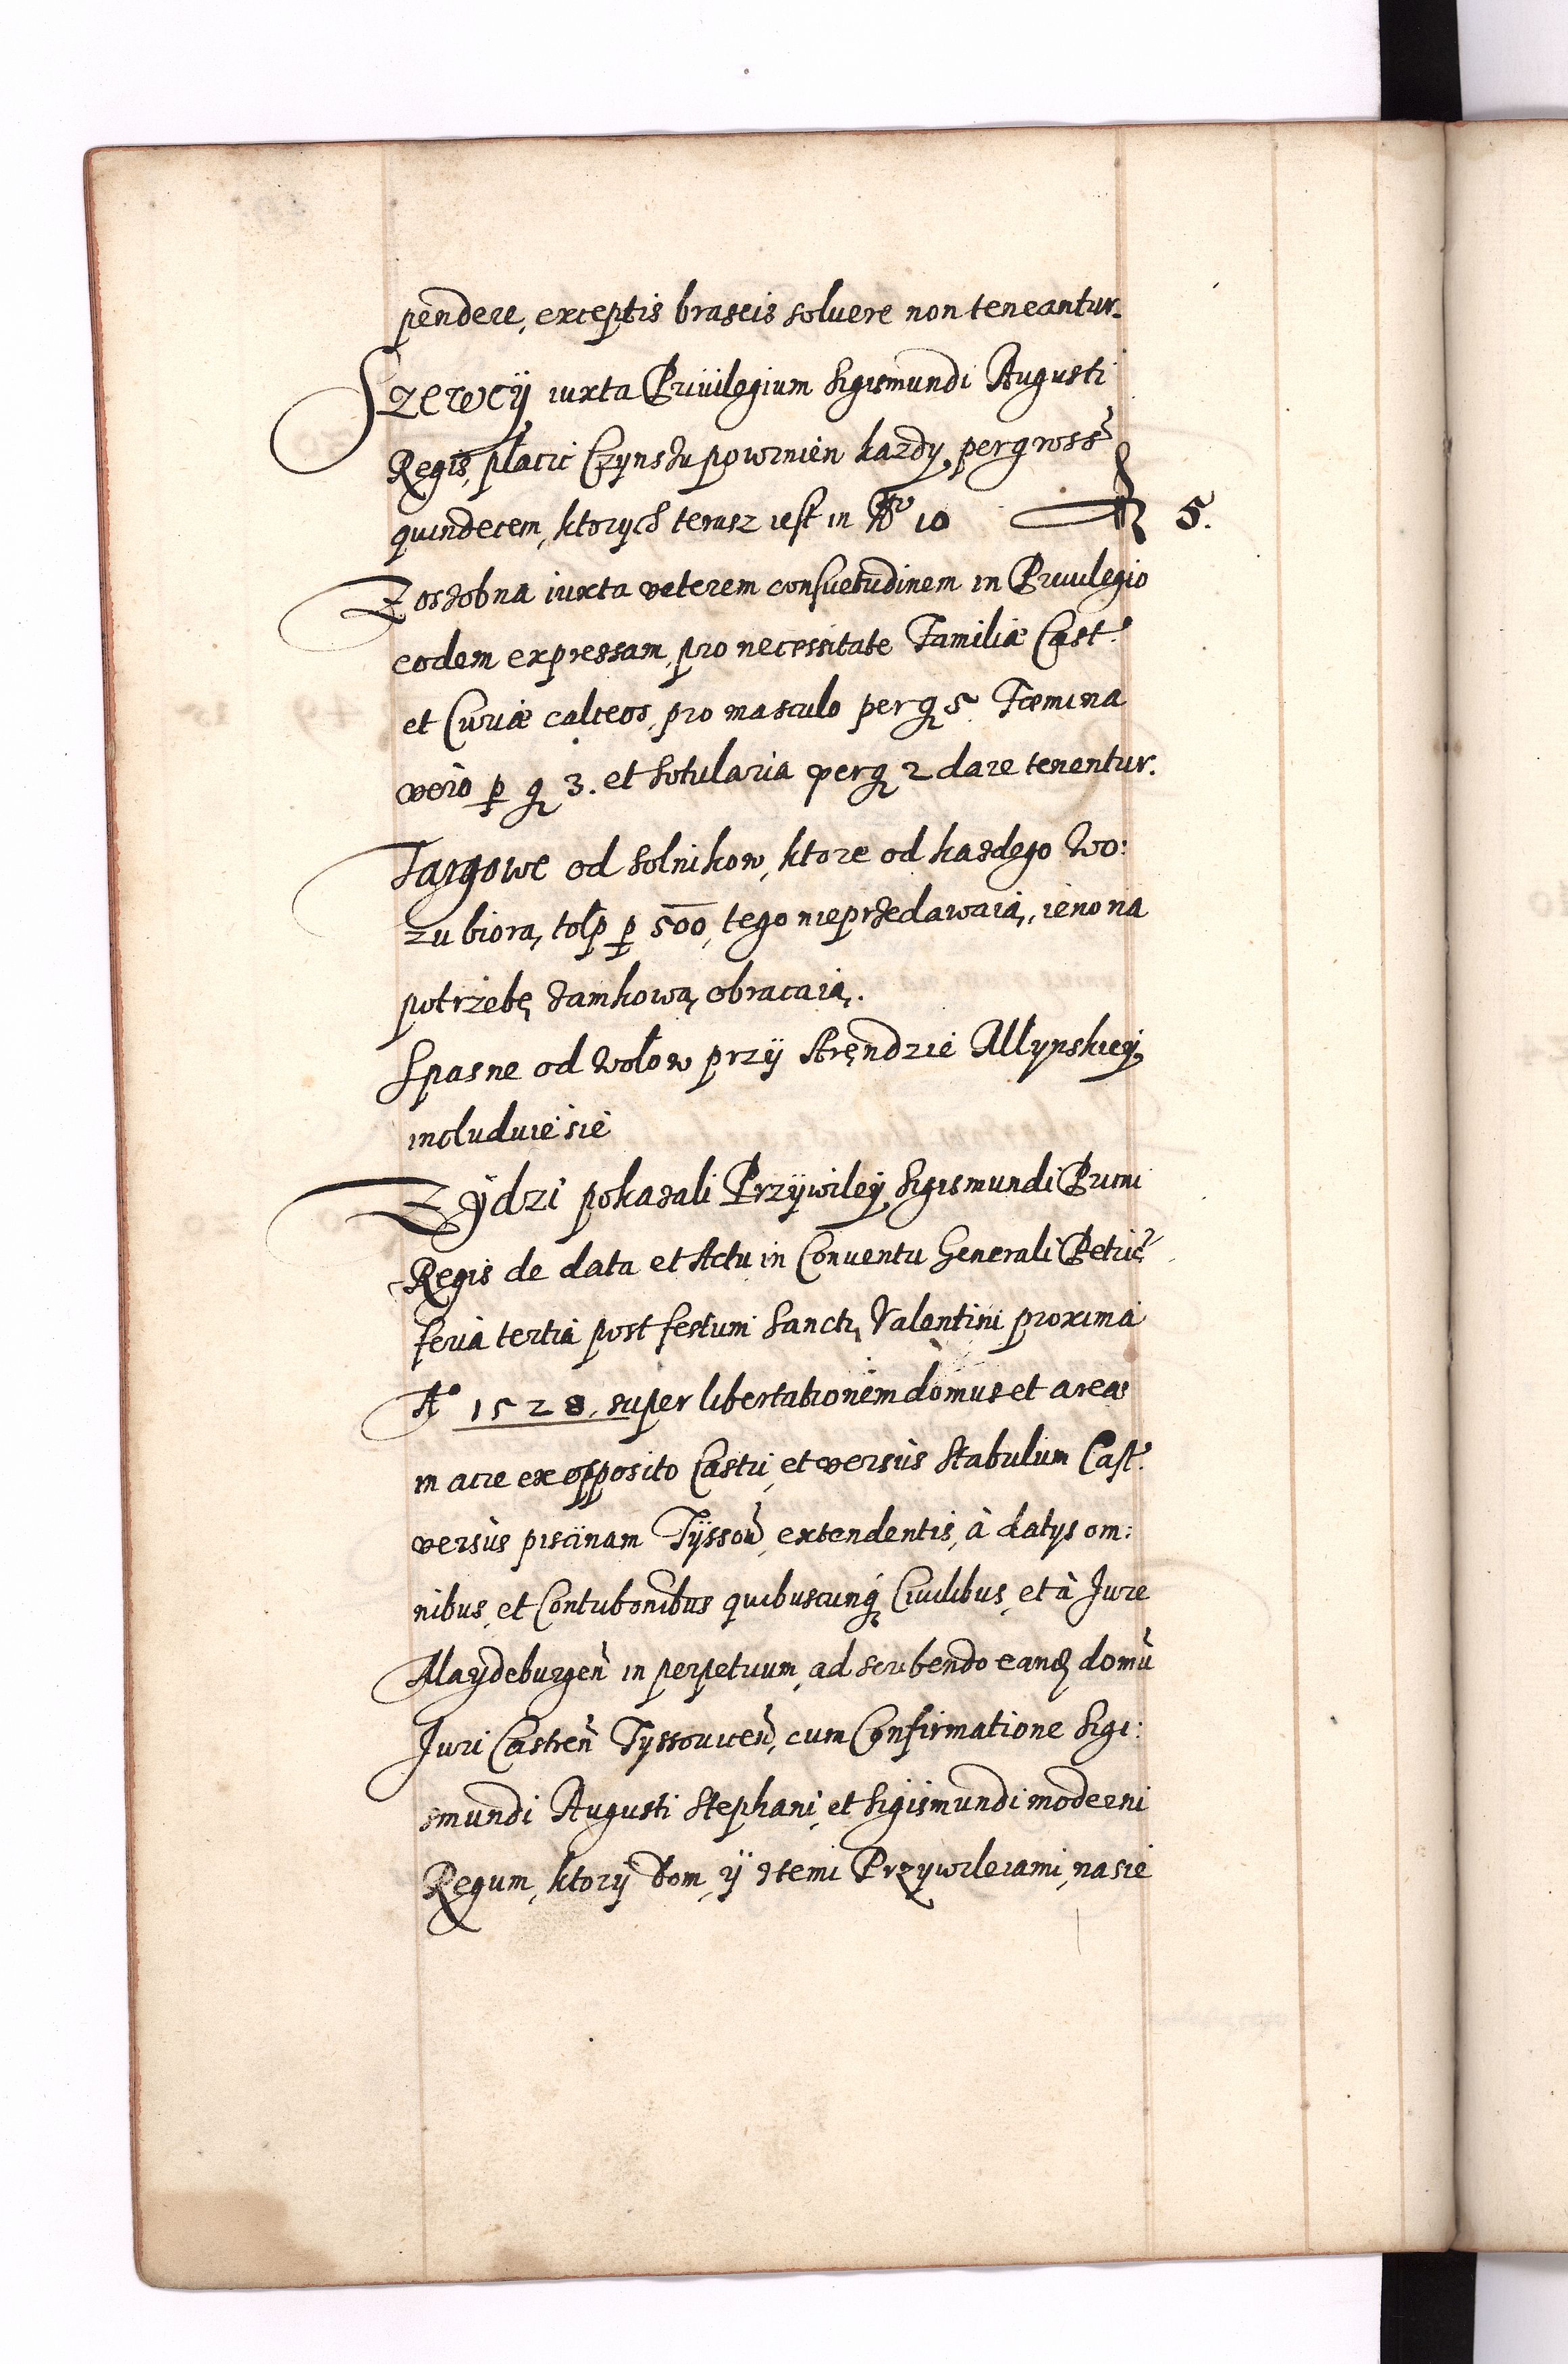 pendere, exceptis braseis soluere non teneantur.
Szewcÿ iuxta Priuilegium Sigismundi Augusti
Regis, płacic Czynszu powinien kazdy per gross
quindecem, ktorych terasz iest in Nro 10 f 5.
Zoszobna iuxta veterem consuetudinem in Priuilegio
eodem expressam, pro necessitate Familiæ Cast.
et Curiæ calceos, pro masculo per gr 5. Fœmina
vero p gr 3. et Sotularia per gr 2 dare tenentur.
Targowe od Solnikow, ktore od kazdego Wo:
zu biorą, tolp p 500, tego nieprzedawaią, ieno na
potrzebę zamkową obracaią.
Spasne od Wołow przÿ Arendzie Młynskieÿ
includuie sie
Zÿdzi pokazali Przÿwileÿ Sigismundi Primi
Regis de data et Actu in Conventu Generali Petric
feria tertia post festum Sancti Valentini proxima
Aº 1528, super libertationem domus et areæ
in acie ex opposito Castri, et versùs Stabulum Cast.
versùs piscinam Tÿssow, extendentis, à datÿs om:
nibus, et Contribonibus quibuscunq Ciuilibus, et à Jure
Maydeburgen in perpetuum, adscribendo eand domu
Juri Castren Tyssouicen, cum Confirmatione Sigi:
smundi Augusti Stephani, et Sigismundi moderni
Regum, ktorÿ Dom, ÿ ztemi Przywileiami, na sie